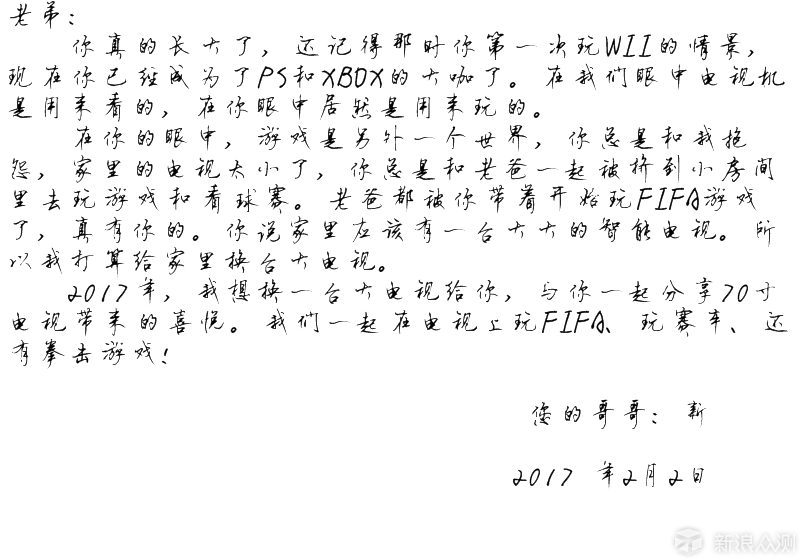 老弟：
你真的长大了，还记得那时你第一次玩WII的情景，
现在你已经成为了PS和XBOX的大咖了。在我们眼中电视机
是用来看的，在你眼中居然是用来玩的。
在你的眼中，游戏是另外一个世界，你总是和我抱
怨，家里的电视太小了，你总是和老爸一起被挤到小房间
里去玩游戏和看球赛。老爸都被你带着开始玩FIFA游戏
了，真有你的。你说家里应该有一台大大的智能电视。所
以我打算给家里换台大电视。
2017年，我想换一台大电视给你，与你一起分享70寸
电视带来的喜悦。我们一起在电视上玩FIFA、玩赛车、还
有拳击游戏！
您的哥哥：新
2017 年2月2日
新浪众测